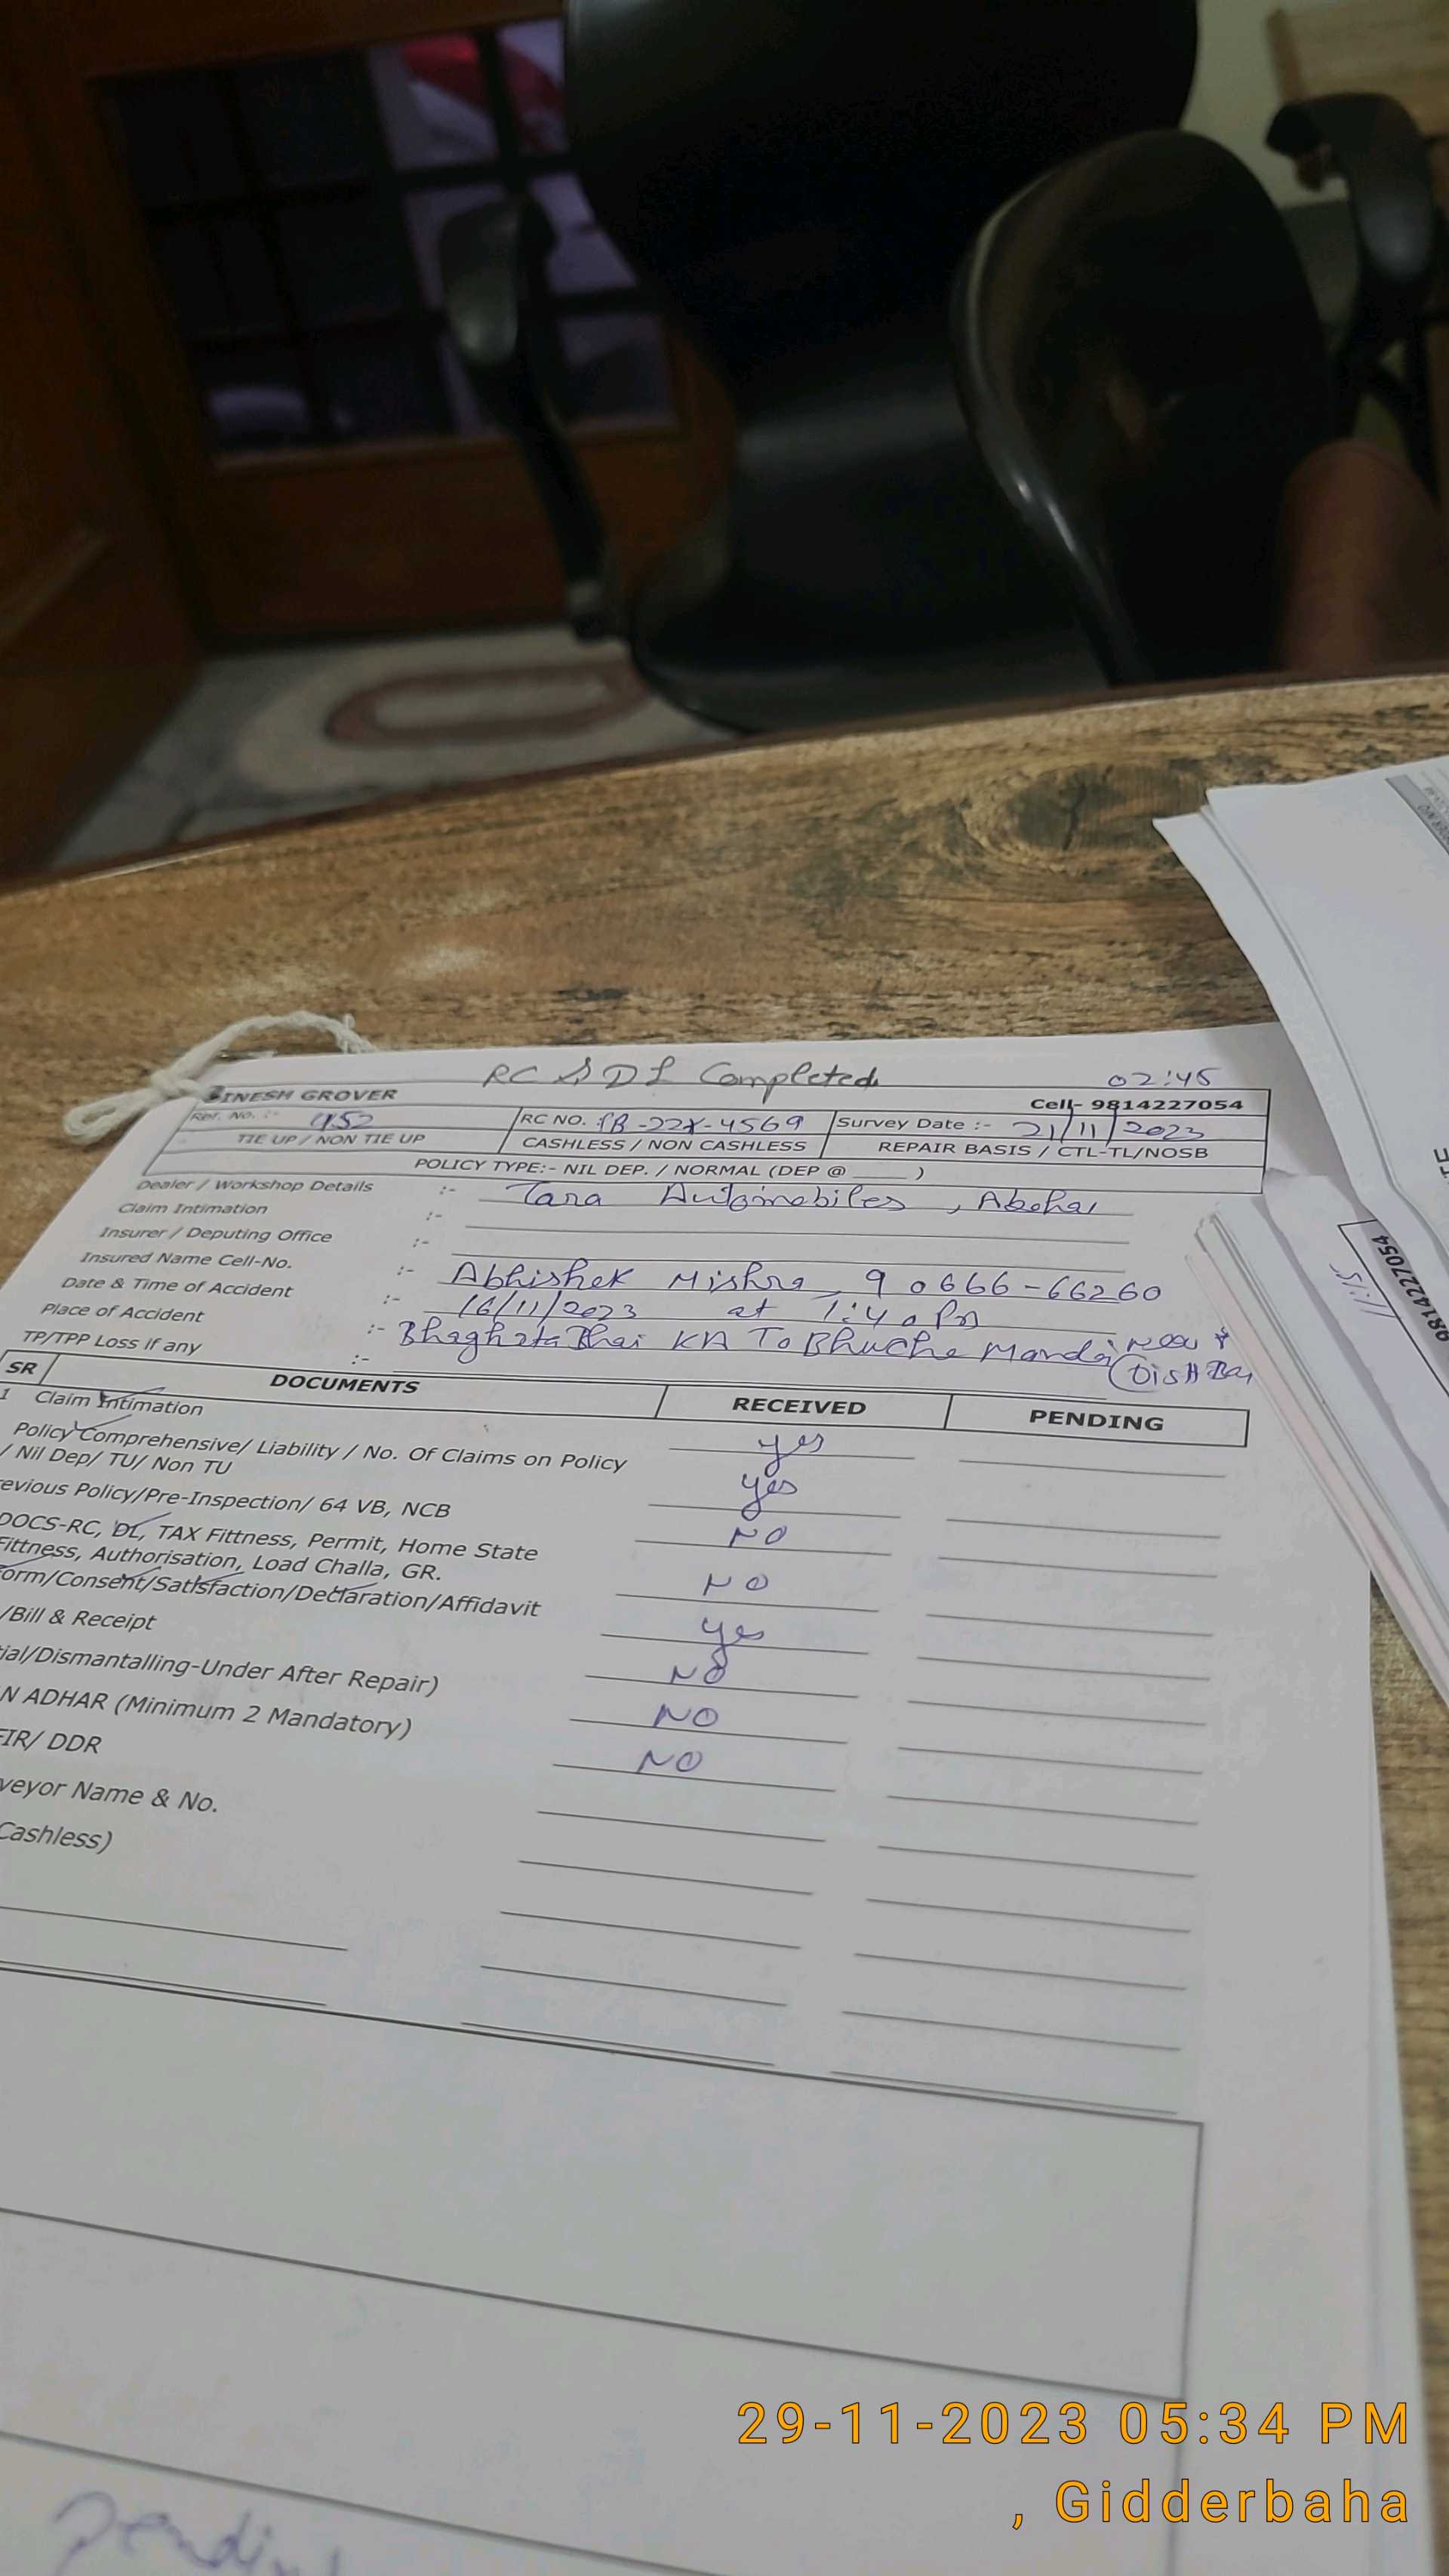 RC & DL Completed 02:45
DINESH GROVER Cell- 9814227054
Ref. No. :- RC NO. PB-22X-4569 Survey Date :- 21/11/2023
TIE UP / NON TIE UP CASHLESS / NON CASHLESS REPAIR BASIS / CTL-TL/NOSB
POLICY TYPE:- NIL DEP. / NORMAL (DEP @ )
Dealer / Workshop Details :- Tara Automobiles, Abohar
Claim Intimation :-
Insurer / Deputing Office :-
Insured Name Cell-No. :- Abhishek Mishra, 90666-66260
Date & Time of Accident :- 16/11/2023 at 1:40 Pm
Place of Accident :- Bhaghata Bhai KA To Bhucho Mandi Near
TP/TPP Loss if any :-
SR DOCUMENTS RECEIVED PENDING
1 Claim Intimation yes
Policy Comprehensive/ Liability / No. Of Claims on Policy yes
/ Nil Dep/ TU/ Non TU
evious Policy/Pre-Inspection/ 64 VB, NCB NO
DOCS-RC, DL, TAX Fittness, Permit, Home State NO
Fittness, Authorisation, Load Challa, GR.
orm/Consent/Satisfaction/Declaration/Affidavit yes
/Bill & Receipt NO
ial/Dismantalling-Under After Repair) NO
N ADHAR (Minimum 2 Mandatory) NO
FIR/ DDR
veyor Name & No.
Cashless)
9814227054
29-11-2023 05:34 PM
, Gidderbaha